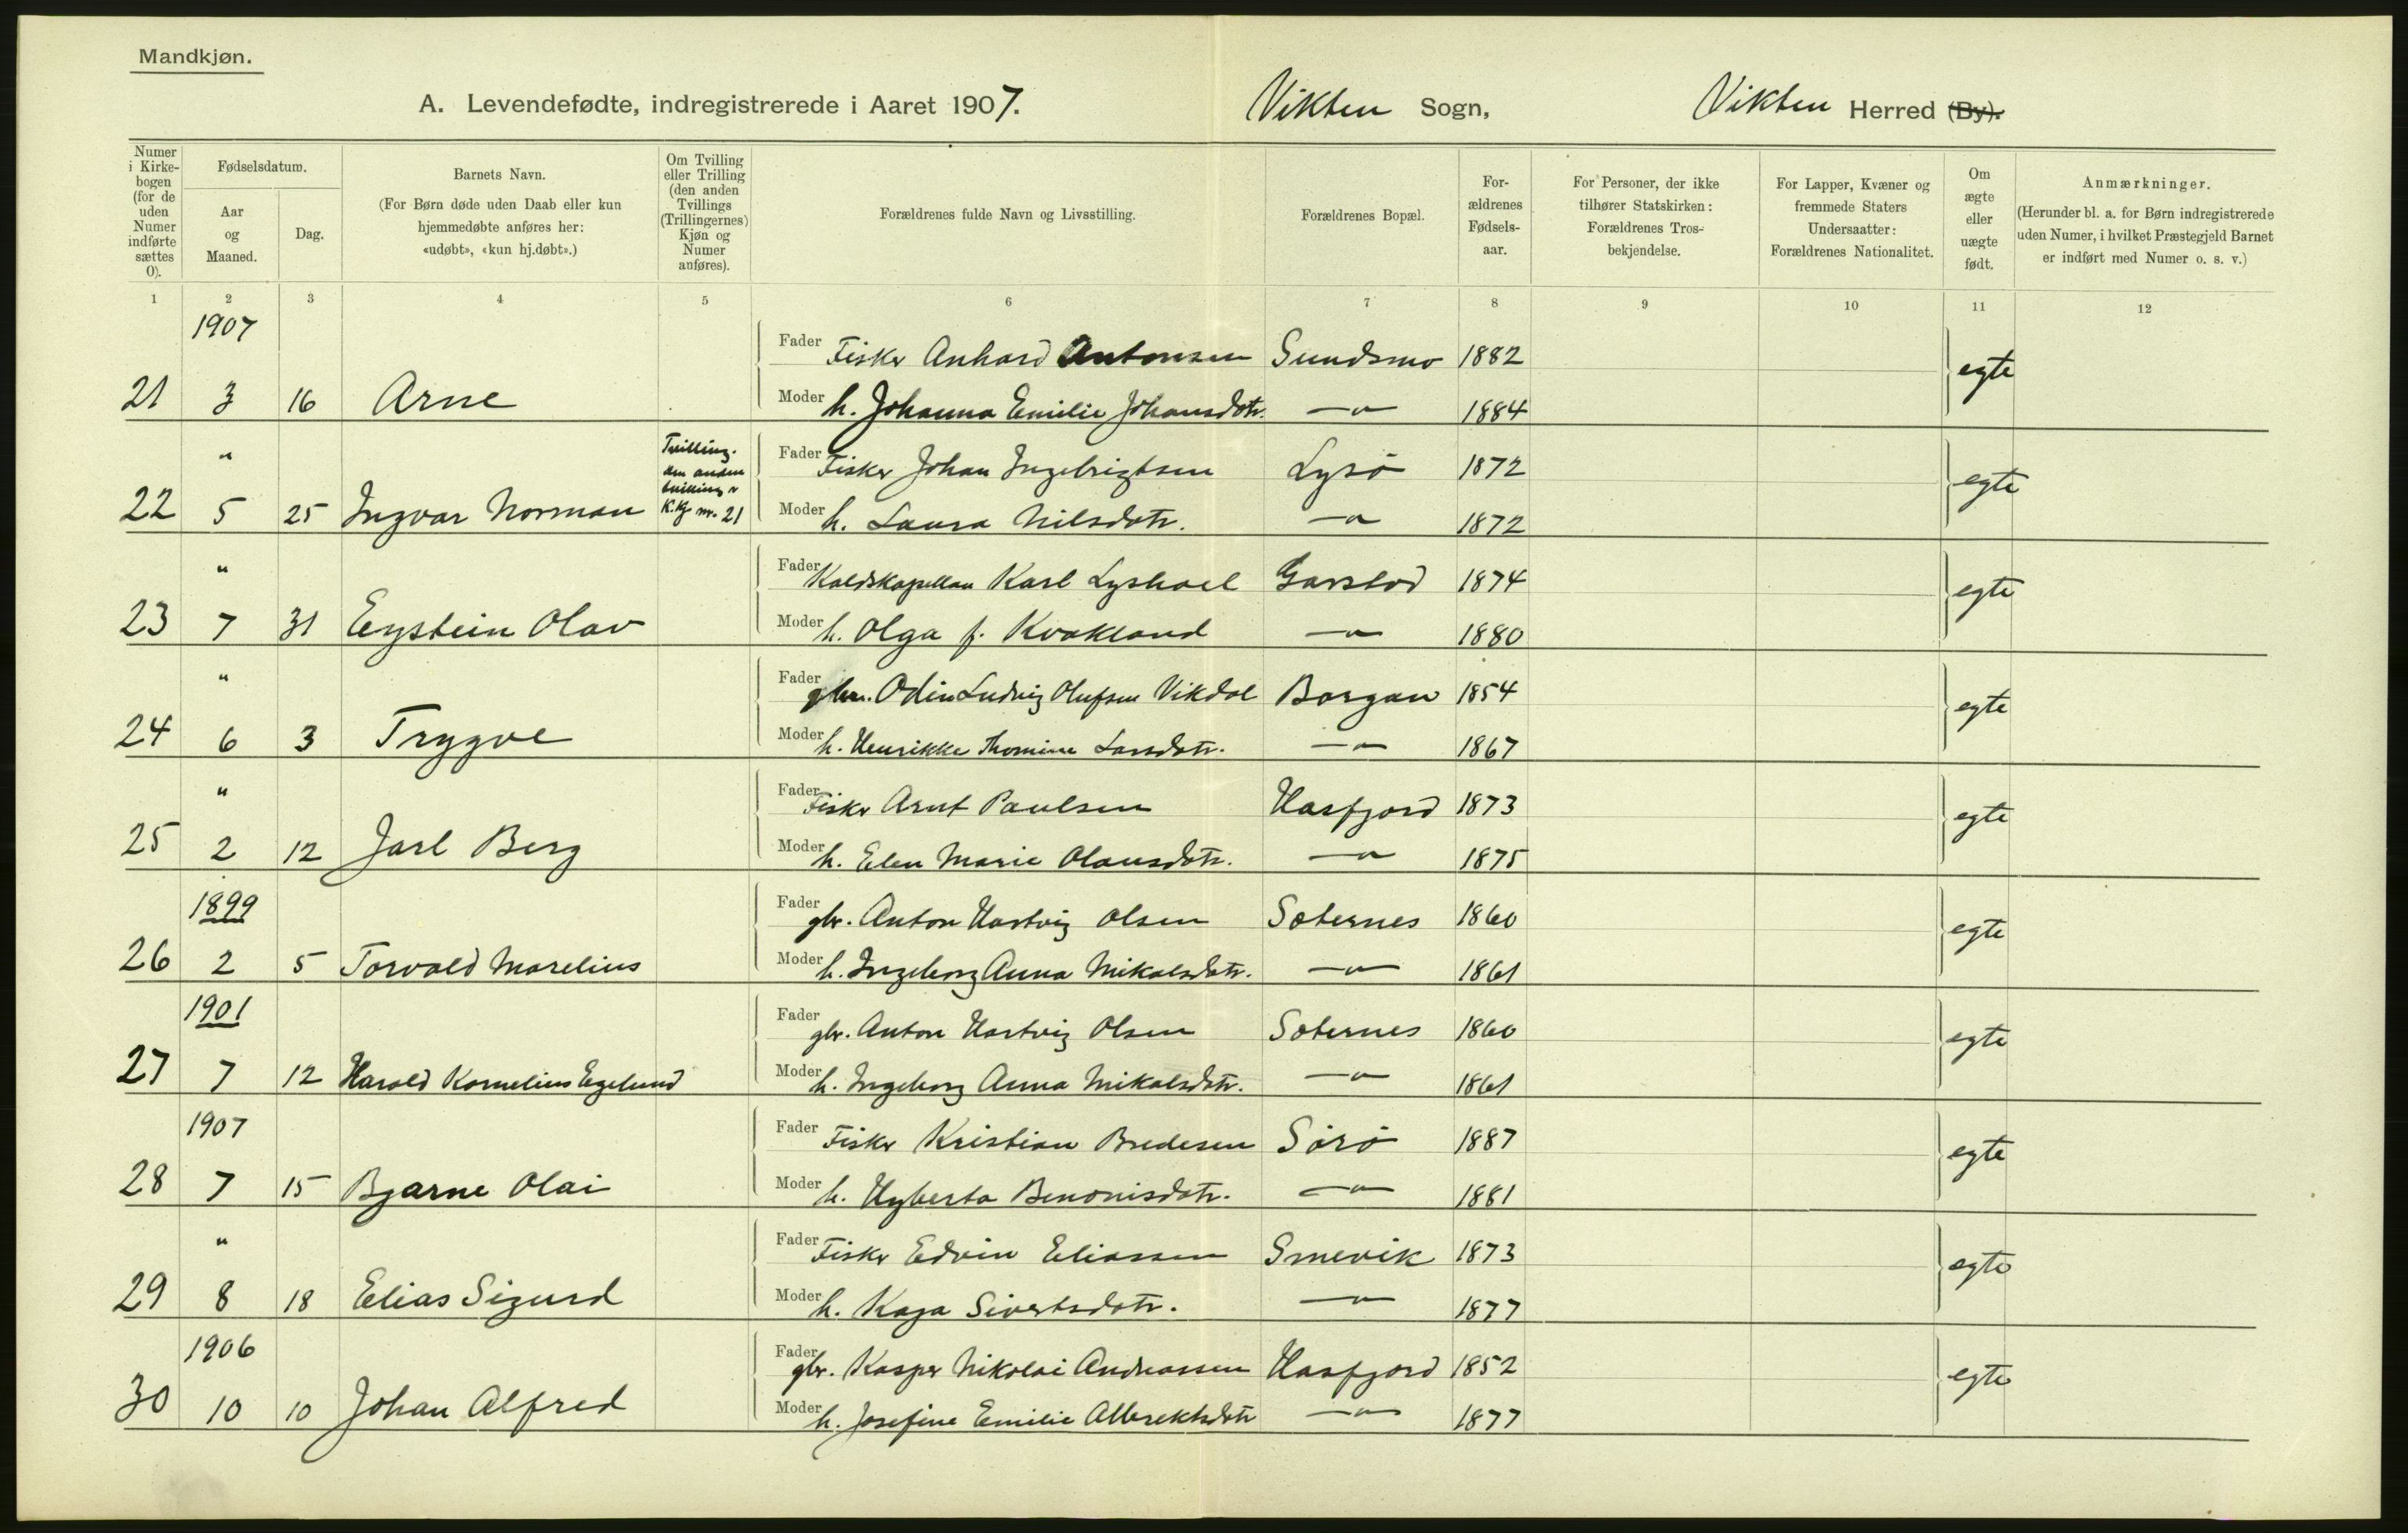 Mandkjøn.
A. Levendefødte, indregistrerede i Aaret 1907. Vikten Sogn, Vikten Herred (By).
Numer i Kirkebogen (for de uden Numer indførte sættes 0).
Fødselsdatum.
Aar og Maaned.
Dag.
Barnets Navn.
(For Børn døde uden Daab eller kun hjemmedøbte anføres her: «udøbt», «kun hj.døbt».)
Om Tvilling eller Trilling (den anden Tvillings (Trillingernes) Kjøn og Numer anføres).
Forældrenes fulde Navn og Livsstilling.
Forældrenes Bopæl.
For-ældrenes Fødsels-aar.
For Personer, der ikke tilhører Statskirken: Forældrenes Tros-bekjendelse.
For Lapper, Kvæner og fremmede Staters Undersaatter: Forældrenes Nationalitet.
Om ægte eller uægte født.
Anmærkninger.
(Herunder bl. a. for Børn indregistrerede uden Numer, i hvilket Præstegjeld Barnet er indført med Numer o. s. v.)
1 2 3 4 5 6 7 8 9 10 11 12
1907
Fader Fisker Anhard Antonsen Sundsmo 1882
21 3 16 Arne Moder h. Johanna Emilie Johansdotr. —"— 1884 egte
" Tvilling. den anden tvilling K.kj nr. 21 Fader Fisker Johan Ingebrigtsen Lysö 1872
22 5 25 Ingvar Norman Moder h. Laura Nilsdotr. —"— 1872 egte
" Fader Kaldskapellan Karl Lyshoel Garstad 1874
23 7 31 Eystein Olav Moder h. Olga f. Kvakland —"— 1880 egte
" Fader gbr. Odin Ludvig Olufsen Vikdal Borgan 1854
24 6 3 Trygve Moder h. Henrikke Thomine Larsdotr. —"— 1867 egte
" Fader Fisker Arnt Paulsen Hasfjord 1873
25 2 12 Jarl Berg Moder h. Elen Marie Olausdotr. —"— 1875 egte
1899 Fader gbr. Anton Hartvig Olsen Sæternes 1860
26 2 5 Torvald Marelius Moder h. Ingeborg Anna Mikalsdotr. —"— 1861 egte
1901 Fader gbr. Anton Hartvig Olsen Sæternes 1860
27 7 12 Harald Kornelius Egelund Moder h. Ingeborg Anna Mikalsdotr. —"— 1861 egte
1907 Fader Fisker Kristian Bredesen Sörö 1887
28 7 15 Bjarne Olai Moder h. Hyberta Benonisdotr. —"— 1881 egte
" Fader Fisker Edvin Eliassen Smevik 1873
29 8 18 Elias Sigurd Moder h. Kaja Sivertsdotr. —"— 1877 egte
1906 Fader gbr. Kasper Nikolai Andreassen Hasfjord 1852
30 10 10 Johan Alfred Moder h. Josefine Emilie Albrektsdotr —"— 1877 egte